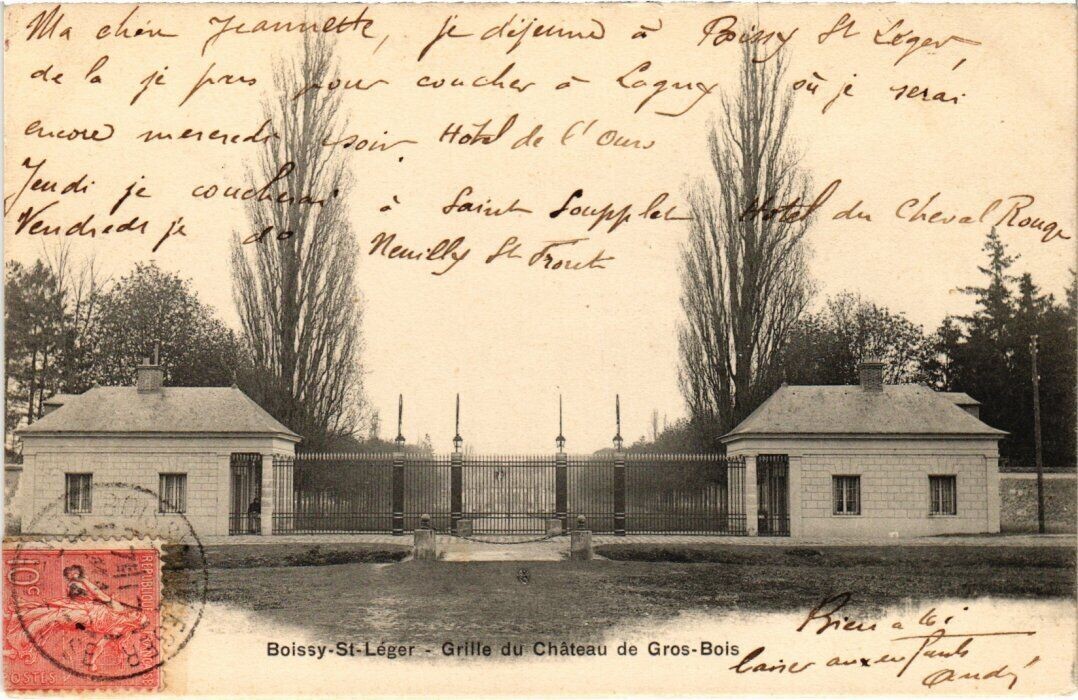 Ma chère Jeannette, je déjeune à Boissy St Léger,
de la je pars pour coucher à Lagny où je serai
encore mercredi soir Hotel de l'Ours
Jeudi je coucherai à Saint Soupplet Hotel du Cheval Rouge
Vendredi je do Neuilly St Front
Bien à toi
baiser aux enfants
André
10c RÉPUBLIQUE
POSTES
Boissy-St-Léger - Grille du Château de Gros-Bois